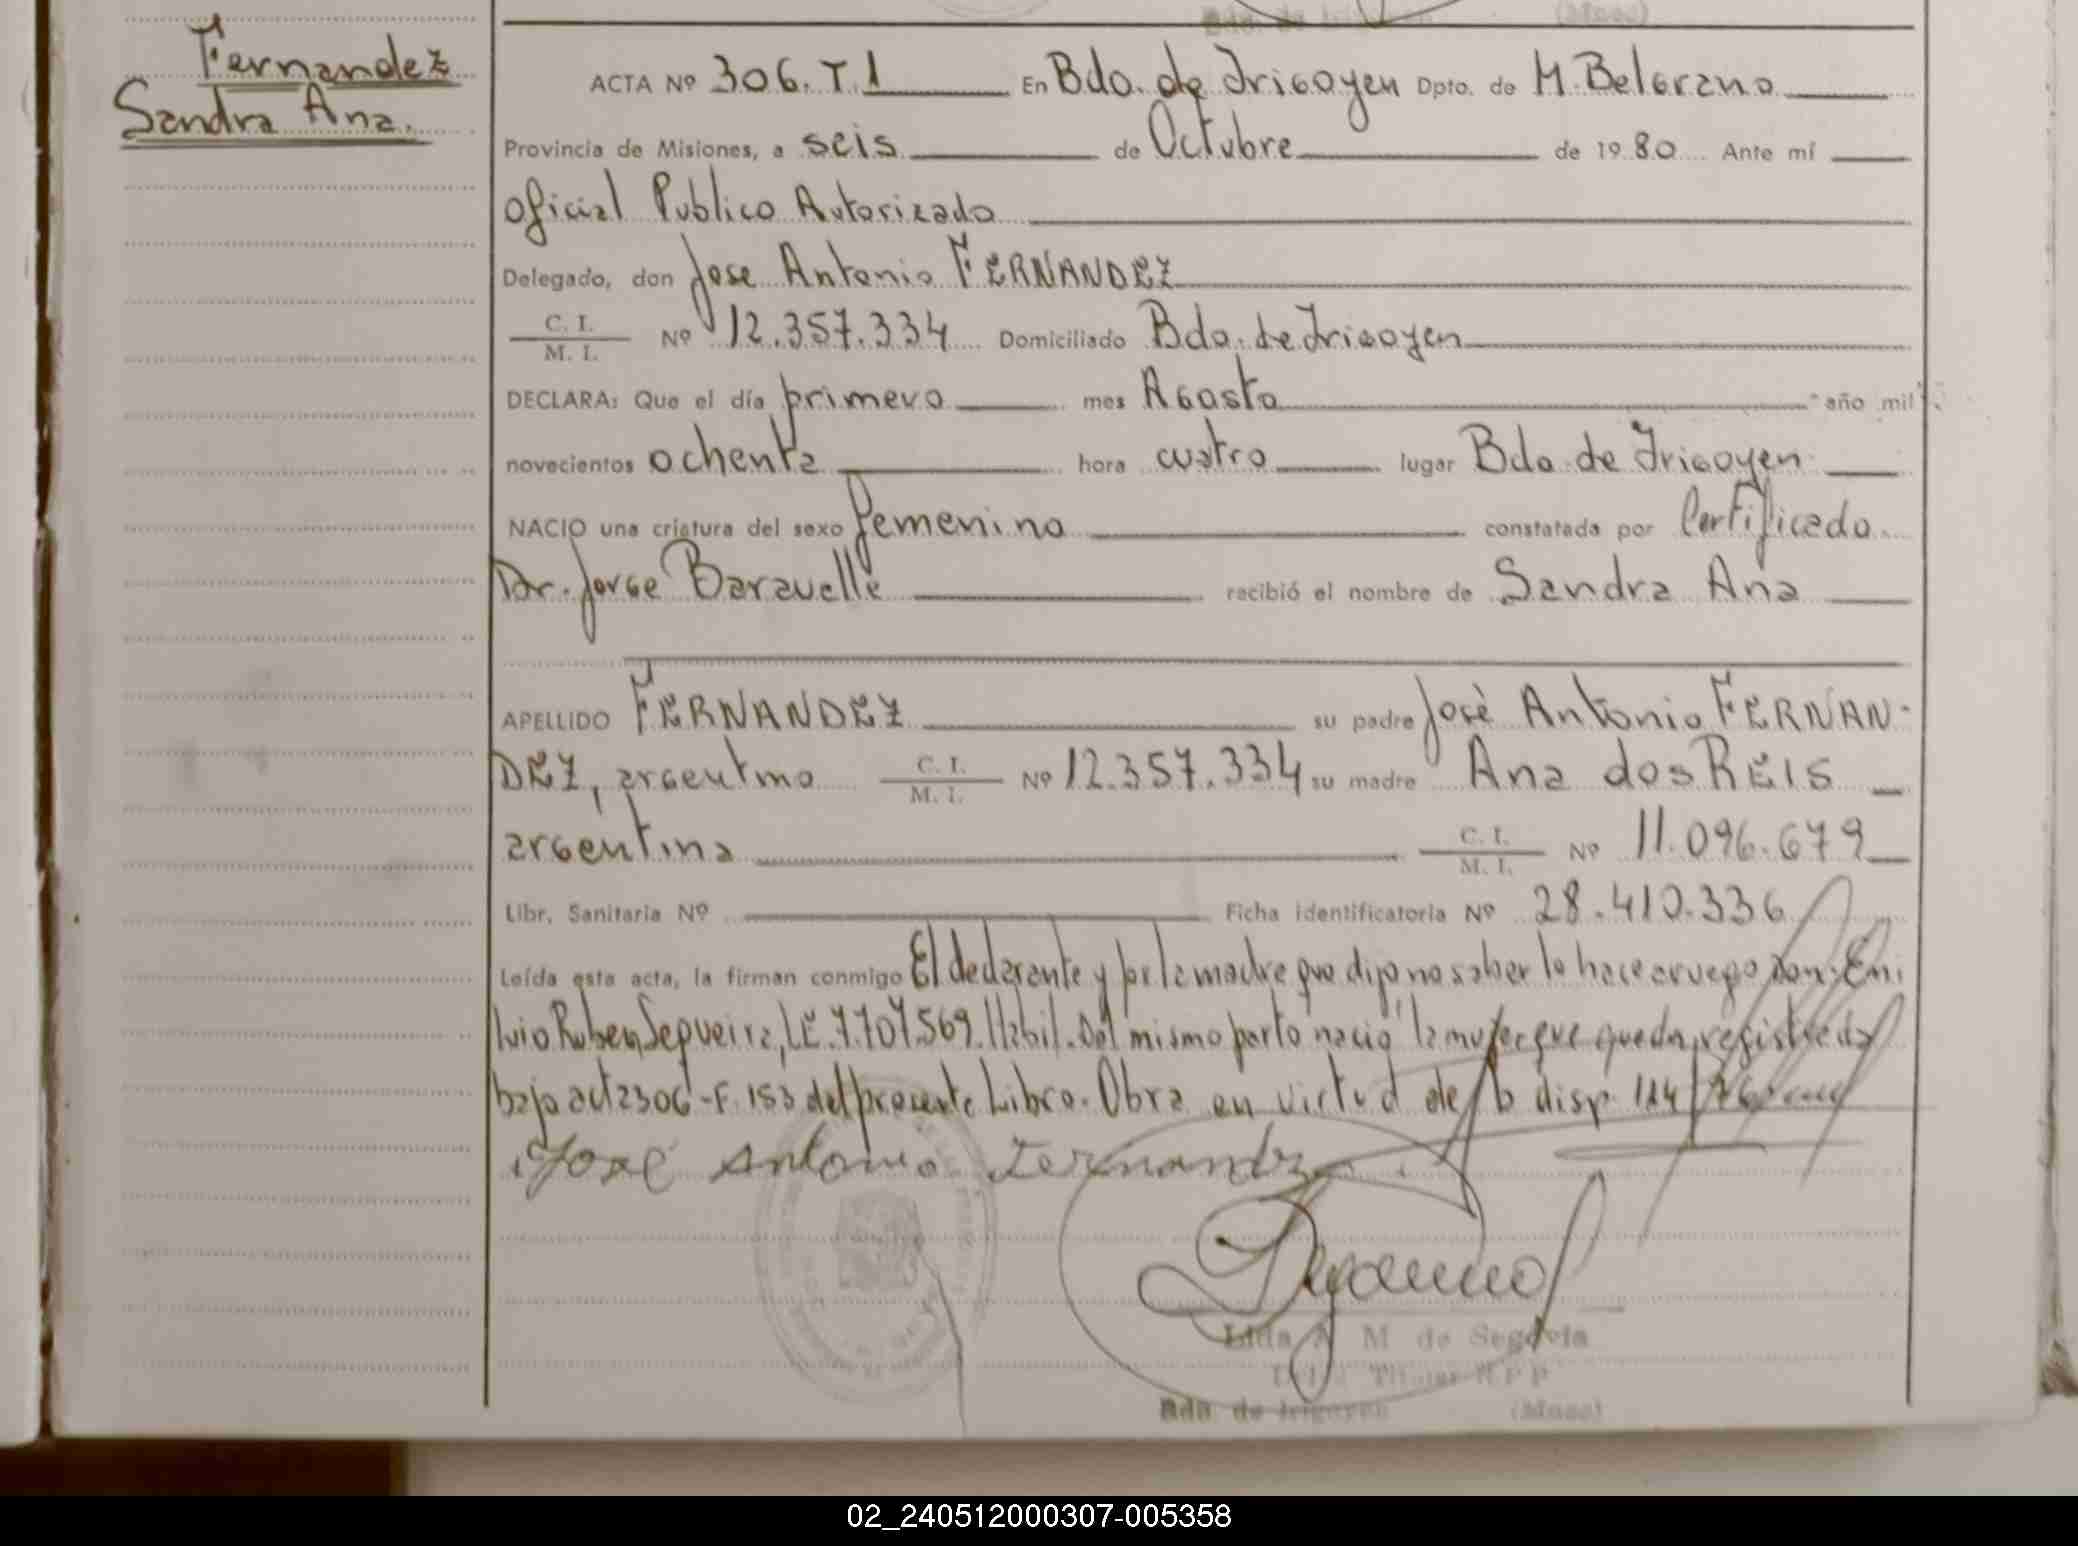 Fernandez
Sandra Ana.
ACTA Nº 306. T. 1 En Bdo. de Irigoyen Dpto. de M. Belgrano
Provincia de Misiones, a seis de Octubre de 1980 Ante mí
Oficial Publico Autorizado
Delegado, don Jose Antonio FERNANDEZ
C. I.
M. I. Nº 12.357.334 Domiciliado Bdo. de Irigoyen
DECLARA: Que el día primero mes Agosto año mil
novecientos ochenta hora cuatro lugar Bdo. de Irigoyen
NACIO una criatura del sexo femenino constatada por Certificado
Dr. Jorge Baravalle recibió el nombre de Sandra Ana
APELLIDO FERNANDEZ su padre José Antonio FERNAN-
DEZ, argentino C. I. M. I. Nº 12.357.334 su madre Ana dos REIS
argentina C. I. M. I. Nº 11.096.679
Libr. Sanitaria Nº Ficha identificatoria Nº 28.410.336
Leída esta acta, la firman conmigo El declarante y por la madre que dijo no saber lo hace a ruego Don:
Ruben Sequeira, LE. 7.707.569. Habil. Del mismo parto nació la mujer que queda registrada
bajo acta 306 - F. 153 del presente Libro. Obra en virtud de la disp. 114/76
José Antonio Fernandez
A M de Segovia
Titular R P P
Bdo de Irigoyen (Mnes)
02_240512000307-005358